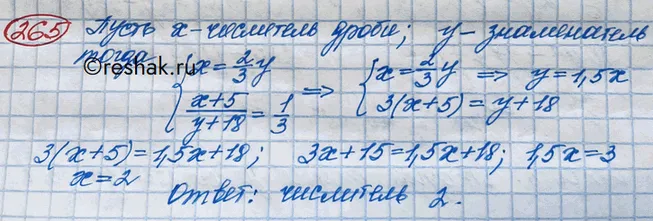 265 Пусть x - числитель дроби; y - знаменатель
тогда
©reshak.ru
{ x = 2/3 y ⇒ { x = 2/3 y ⇒ y = 1,5x
(x+5)/(y+18) = 1/3   3(x+5) = y+18
3(x+5) = 1,5x+18; 3x+15 = 1,5x+18; 1,5x = 3
x = 2
Ответ: числитель 2.